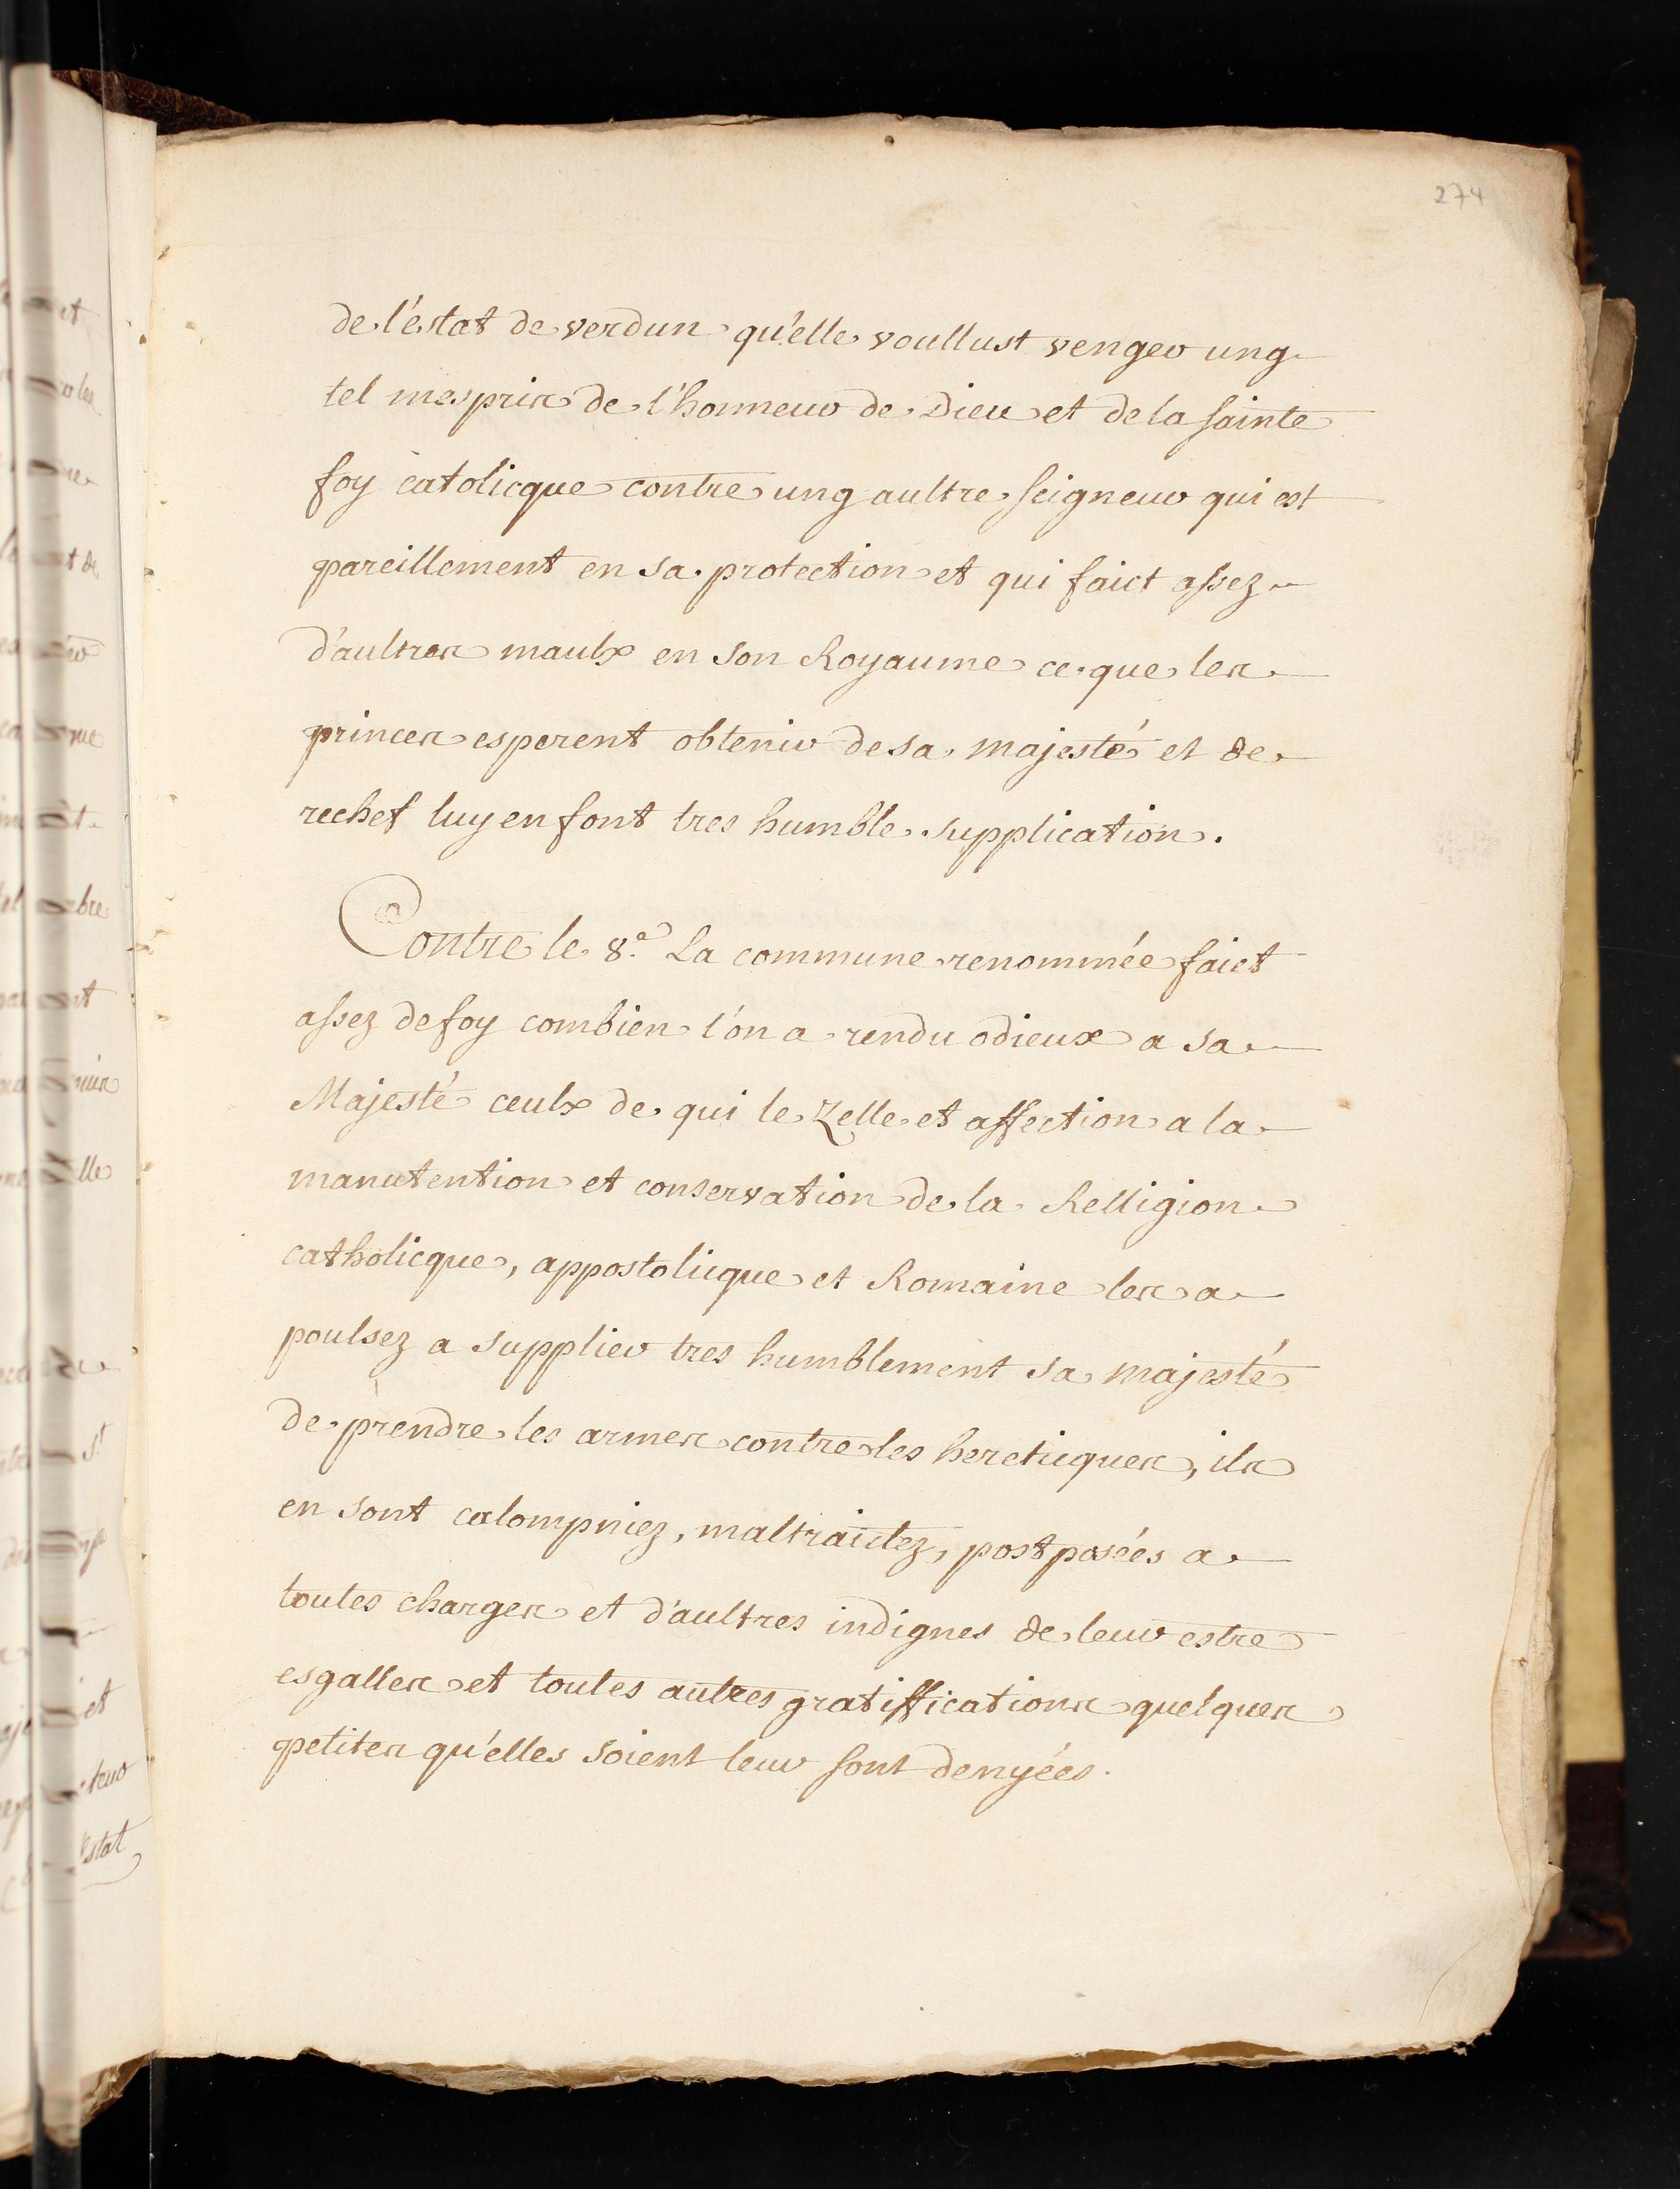 274
de l'éstat de verdun qu'elle voullust venger ung
tel mespris de l'honneur de Dieu et de la sainte
foy catolicque contre ung aultre seigneur qui est
pareillement en sa protection et qui faict assez
d'aultres maulx en son Royaume ce que les
princes esperent obtenir de sa majesté et de
rechef luy en font tres humble supplication.
Contre le 8.e La commune renommée faict
assez de foy combien l'on a rendu odieux a sa
Majesté ceulx de qui le Zelle et affection a la
manutention et conservation de la Relligion
catholicque, appostolicque et Romaine les a
poulsez a supplier tres humblement sa majesté
de prendre les armes contre les hereticques, ils
en sont calompniez, maltraictez, postposéés a
toutes charges et d'aultres indignes de leur estre
esgalles et toutes autres gratiffications quelques
petites qu'elles soient leur sont denyées.